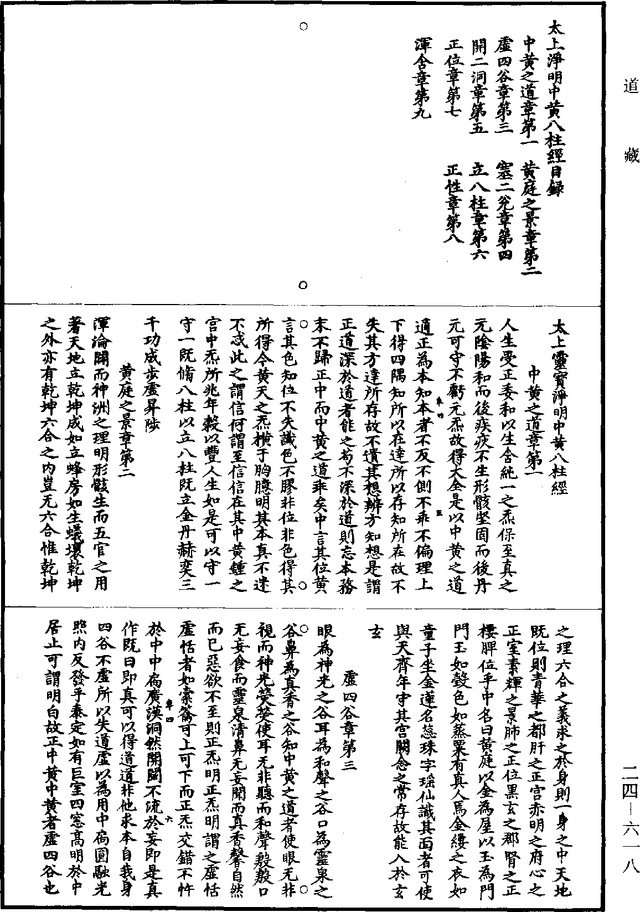 道藏
太上淨明中黃八柱經目錄
中黃之道章第一　黃庭之景章第二
虛四谷章第三　塞二兌章第四
開二洞章第五　立八柱章第六
正位章第七　正性章第八
渾合章第九
太上靈寶淨明中黃八柱經
中黃之道章第一
人生受正委和以生含純一之炁保至真之
元陰陽和而後疾疢不生形骸堅固而後丹
元可守不虧元炁故得大全是以中黃之道
適正為本知本者不反不側不乖不偏理上
下得四隅知所以在達所以存知所在故不
失其方達所存故不遺其想辨方知想是謂
正道深於道者能之苟不深於道則忘本務
末不歸正中而中黃之道乖矣中言其位黃
言其色知位不失識色不膠非位非色得其
所得令黃天之炁橫于胸臆明其本真不迷
不惑此之謂信何謂至信信在其中黃鍾之
宮中炁所兆年穀以豐人生如是可以守一
守一既脩八柱以立八柱既立金丹赫奕三
千功成步虛昇陟
黃庭之景章第二
渾淪闢而神洲之理明形骸生而五官之用
著天地立乾坤成如立蜂房如生蟻壤乾坤
之外亦有乾坤六合之內豈无六合惟乾坤
之理六合之義求之於身則一身之中天地
既位則青華之都肝之正宮赤明之府心之
正室素輝之景肺之正位黑玄之郡腎之正
樓脾位乎中名曰黃庭以金為屋以玉為門
門玉如穀色如蒸栗有真人焉金縷之衣如
童子坐金蓮名惌珠字瑤仙識其面者可使
與天齊年守其宮闕念之常存故能入於玄
玄
虛四谷章第三
眼為神光之谷耳為和聲之谷口為靈泉之
谷鼻為真香之谷知中黃之道者使眼无非
視而神光熒熒使耳无非聽而和聲敷敷口
无妄食而靈泉清鼻无妄聞而真香馨自然
而已惡欲不至則正炁明正炁明謂之虛恬
虛恬者如橐籥可上可下而正炁交錯不忤
於中中扃廣漠洞然開闔不流於妄即是真
作既曰即真可以得道道非他求本自我身
四谷不虛所以失道虛以為用中扃圓融光
照內反發乎泰定如有巨室四窓高明於中
居止可謂明白故正中黃中黃者虛四谷也
二四－六一八